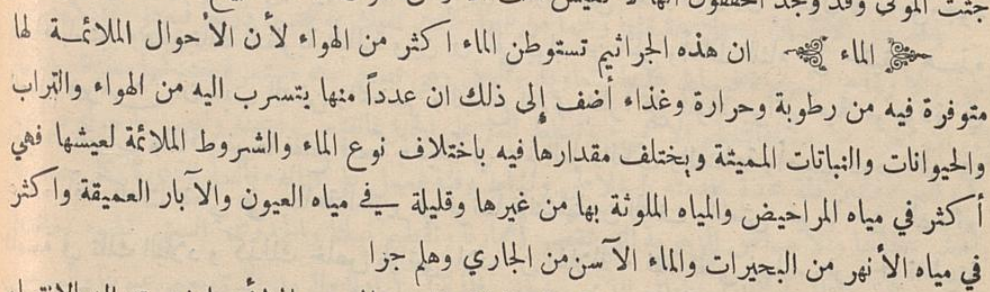 جثث الموتى وقد وجد المحققون انها لا تعيش
الماء ان هذه الجراثيم تستوطن الماء اكثر من الهواء لأن الأحوال الملائمة لها
متوفرة فيه من رطوبة وحرارة وغذاء أضف إلى ذلك ان عدداً منها يتسرب اليه من الهواء والتراب
والحيوانات والنباتات المميتة ويختلف مقدارها فيه باختلاف نوع الماء والشروط الملائمة لعيشها فهي
أكثر في مياه المراحيض والمياه الملوثة بها من غيرها وقليلة في مياه العيون والآبار العميقة واكثر
في مياه الأنهر من البحيرات والماء الآسن من الجاري وهلم جرا